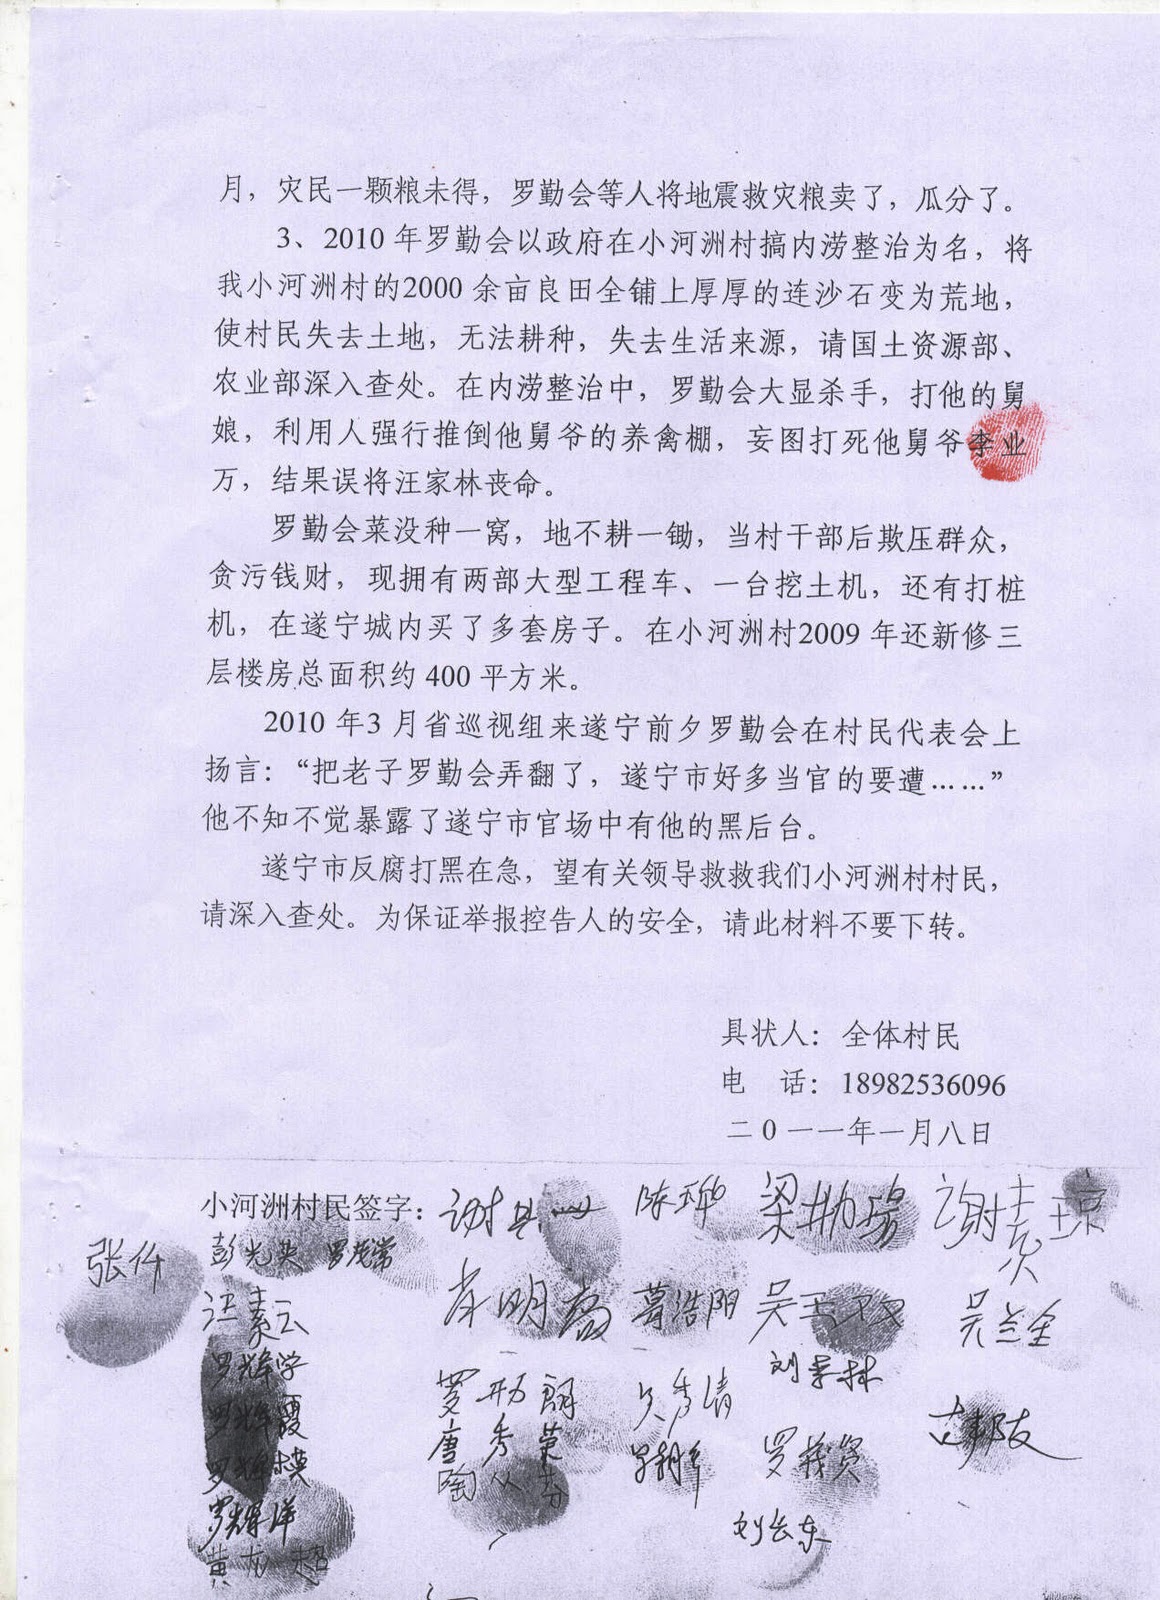 月，灾民一颗粮未得，罗勤会等人将地震救灾粮卖了，瓜分了。
3、2010年罗勤会以政府在小河洲村搞内涝整治为名，将
我小河洲村的2000余亩良田全铺上厚厚的连沙石变为荒地，
使村民失去土地，无法耕种，失去生活来源，请国土资源部、
农业部深入查处。在内涝整治中，罗勤会大显杀手，打他的舅
娘，利用人强行推倒他舅爷的养禽棚，妄图打死他舅爷李业
万，结果误将汪家林丧命。
罗勤会菜没种一窝，地不耕一锄，当村干部后欺压群众，
贪污钱财，现拥有两部大型工程车、一台挖土机，还有打桩
机，在遂宁城内买了多套房子。在小河洲村2009年还新修三
层楼房总面积约400平方米。
2010年3月省巡视组来遂宁前夕罗勤会在村民代表会上
扬言：“把老子罗勤会弄翻了，遂宁市好多当官的要遭……”
他不知不觉暴露了遂宁市官场中有他的黑后台。
遂宁市反腐打黑在急，望有关领导救救我们小河洲村村民，
请深入查处。为保证举报控告人的安全，请此材料不要下转。
具状人：全体村民
电 话：18982536096
二0一一年一月八日
小河洲村民签字：
彭光英 罗茂常
汪素云
罗辉学
罗辉霞
罗辉洋
黄龙超
谢素琼
葛浩阳
吴兰全
罗茂贤
刘长东